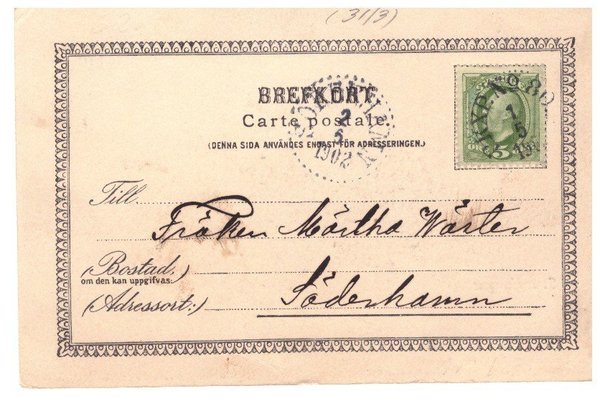 (31/3)
BREFKORT
Carte postale.
(DENNA SIDA ANVÄNDES ENDAST FÖR ADRESSERINGEN.)
SÖDERHAMN
2
5
1902
PKXP. No 80
1
5
190
5
Till
Fröken Märtha Wäster
(Bostad,
om den kan uppgifvas:)
(Adressort:)
Söderhamn